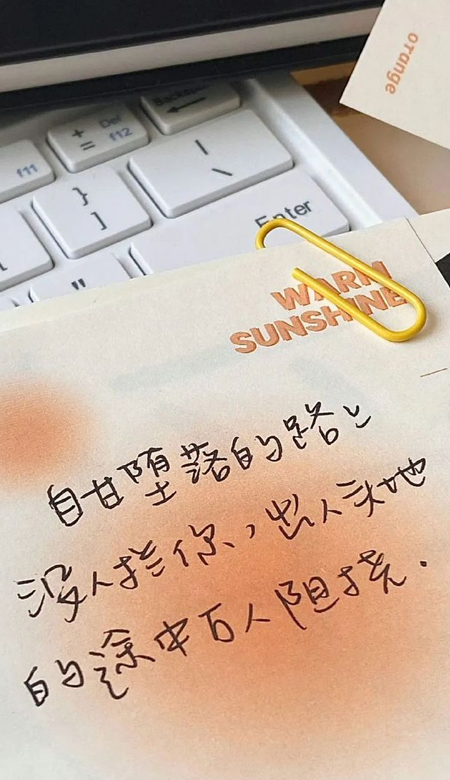 orange
Backspace
+
=
Def
f12
f11
|
\
}
]
[
"
Enter
WARM
SUNSHINE
自甘堕落的路上
没人拦你,出人头地
的途中百人阻挠.